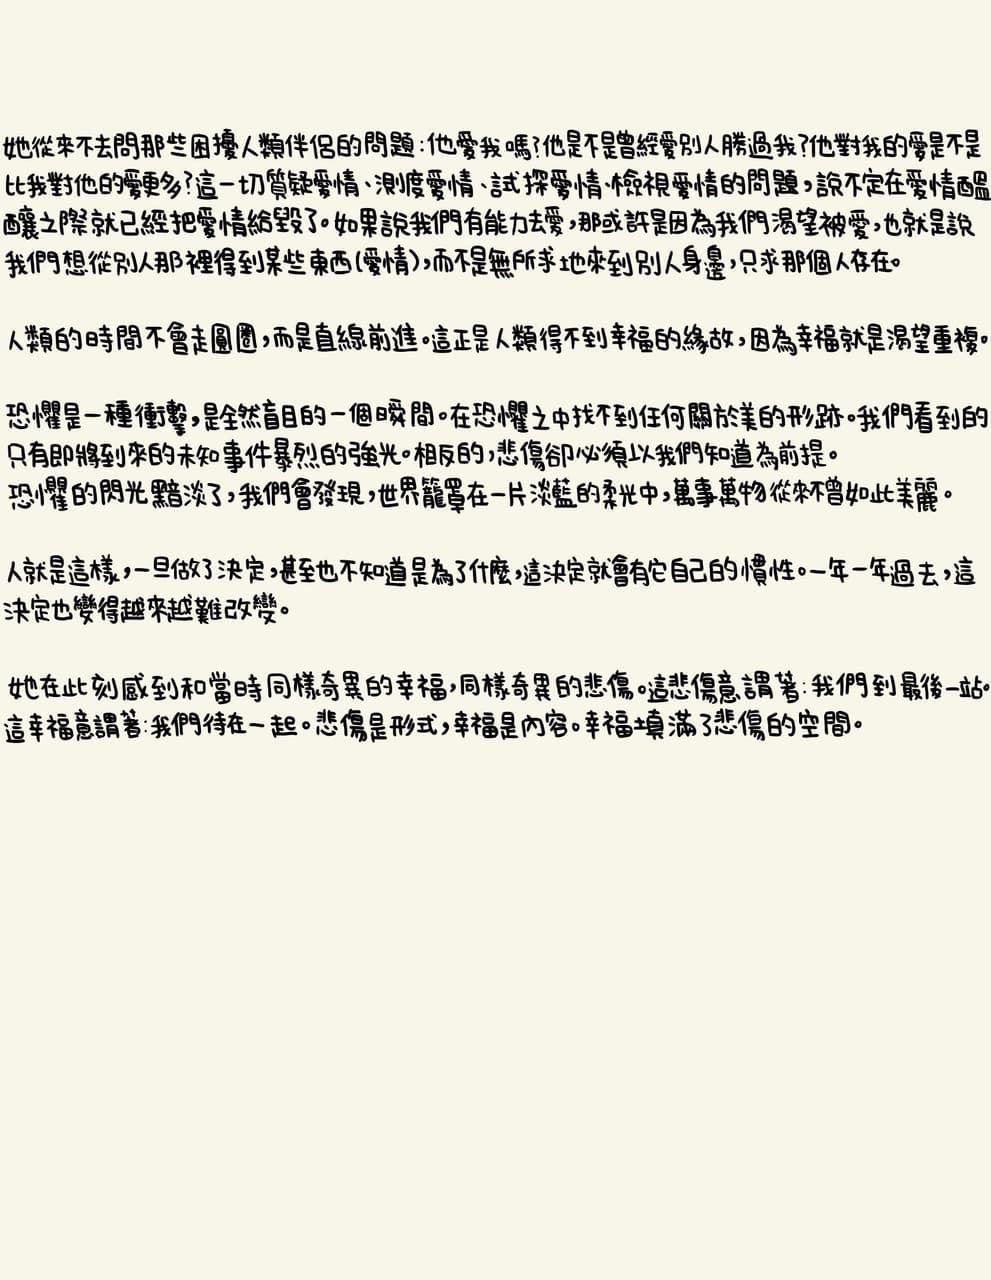 她從來不去問那些困擾人類伴侶的問題:他愛我嗎?他是不是曾經愛別人勝過我?他對我的愛是不是
比我對他的愛更多?這一切質疑愛情、測度愛情、試探愛情、檢視愛情的問題,說不定在愛情醞
釀之際就已經把愛情給毀了。如果說我們有能力去愛,那或許是因為我們渴望被愛,也就是說
我們想從別人那裡得到某些東西(愛情),而不是無所求地來到別人身邊,只求那個人存在。
人類的時間不會走圓圈,而是直線前進。這正是人類得不到幸福的緣故,因為幸福就是渴望重複。
恐懼是一種衝擊,是全然盲目的一個瞬間。在恐懼之中找不到任何關於美的形跡。我們看到的
只有即將到來的未知事件暴烈的強光。相反的,悲傷卻必須以我們知道為前提。
恐懼的閃光黯淡了,我們會發現,世界籠罩在一片淡藍的柔光中,萬事萬物從來不曾如此美麗。
人就是這樣,一旦做了決定,甚至也不知道是為了什麼,這決定就會有它自己的慣性。一年一年過去,這
決定也變得越來越難改變。
她在此刻感到和當時同樣奇異的幸福,同樣奇異的悲傷。這悲傷意謂著:我們到最後一站。
這幸福意謂著:我們待在一起。悲傷是形式,幸福是內容。幸福填滿了悲傷的空間。